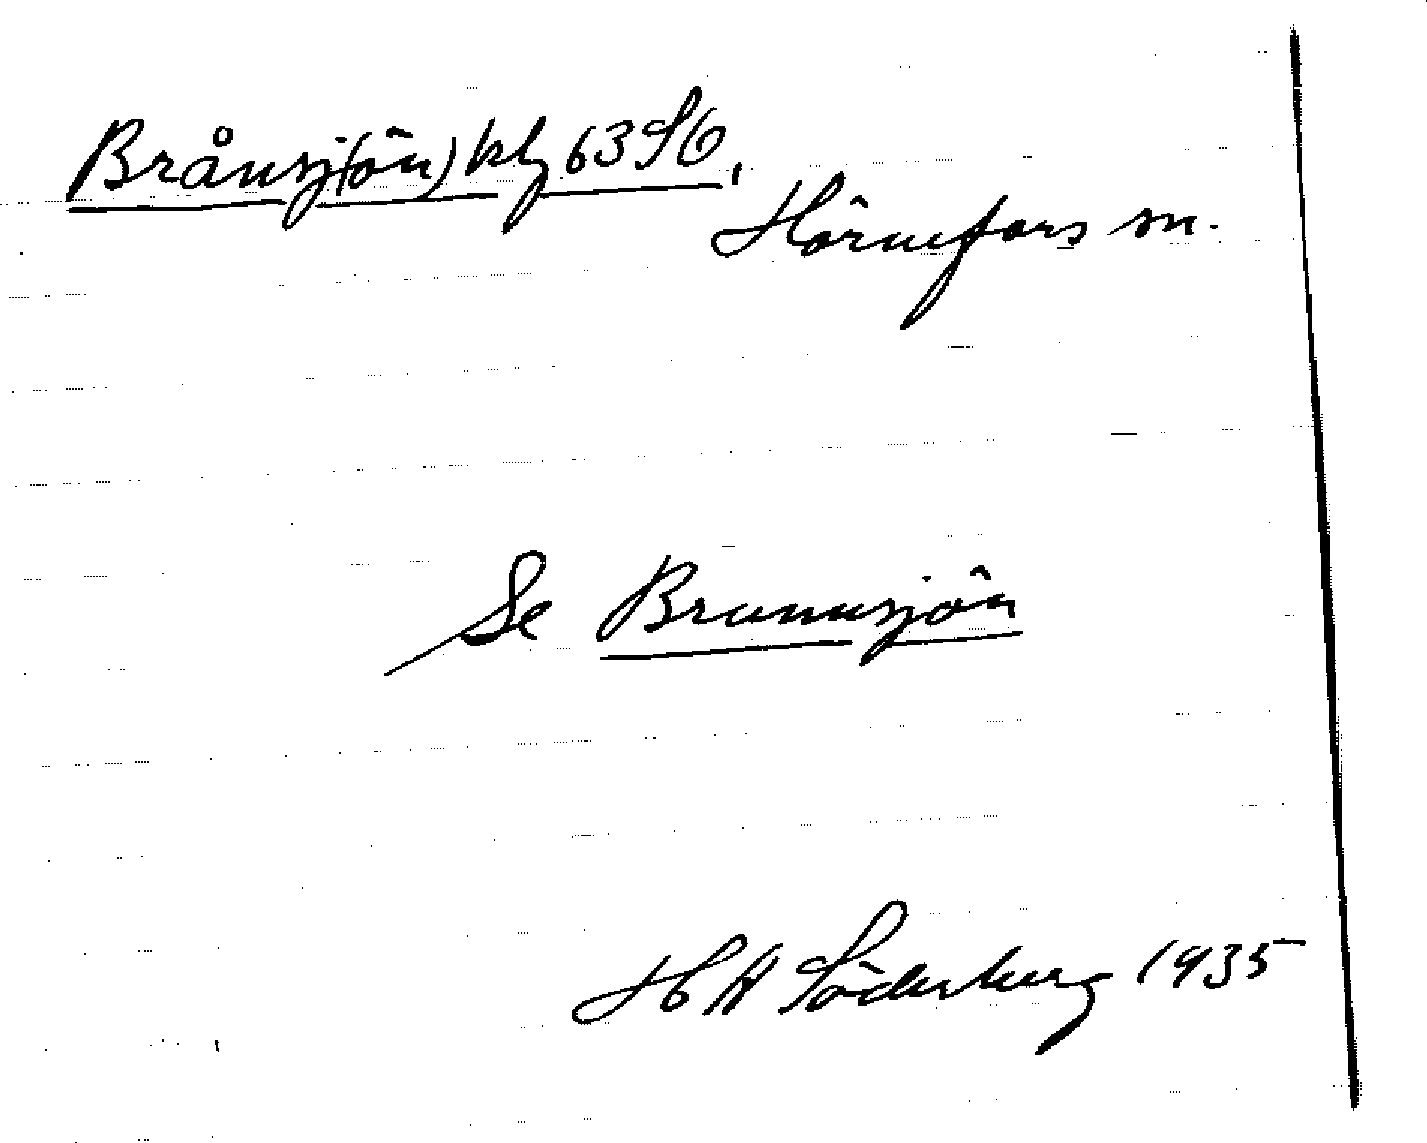 Brånsj(ön) klg 63 S6,
Hörnefors sn.
Se Brunnsjön
H A Söderberg 1935